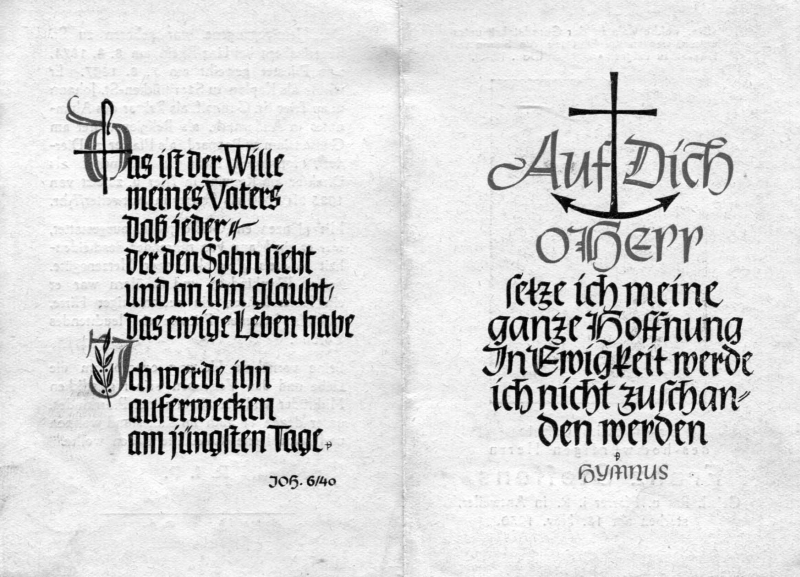 Das ist der Wille
meines Vaters
daß jeder
der den Sohn sieht
und an ihn glaubt
das ewige Leben habe
Ich werde ihn
auferwecken
am jüngsten Tage.
JOH. 6/40
Auf Dich
O Herr
setze ich meine
ganze Hoffnung
In Ewigkeit werde
ich nicht zuschan-
den werden
HYMNUS